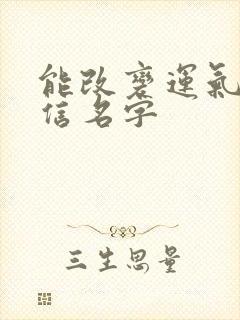 能改變運氣
信名字
三生思量